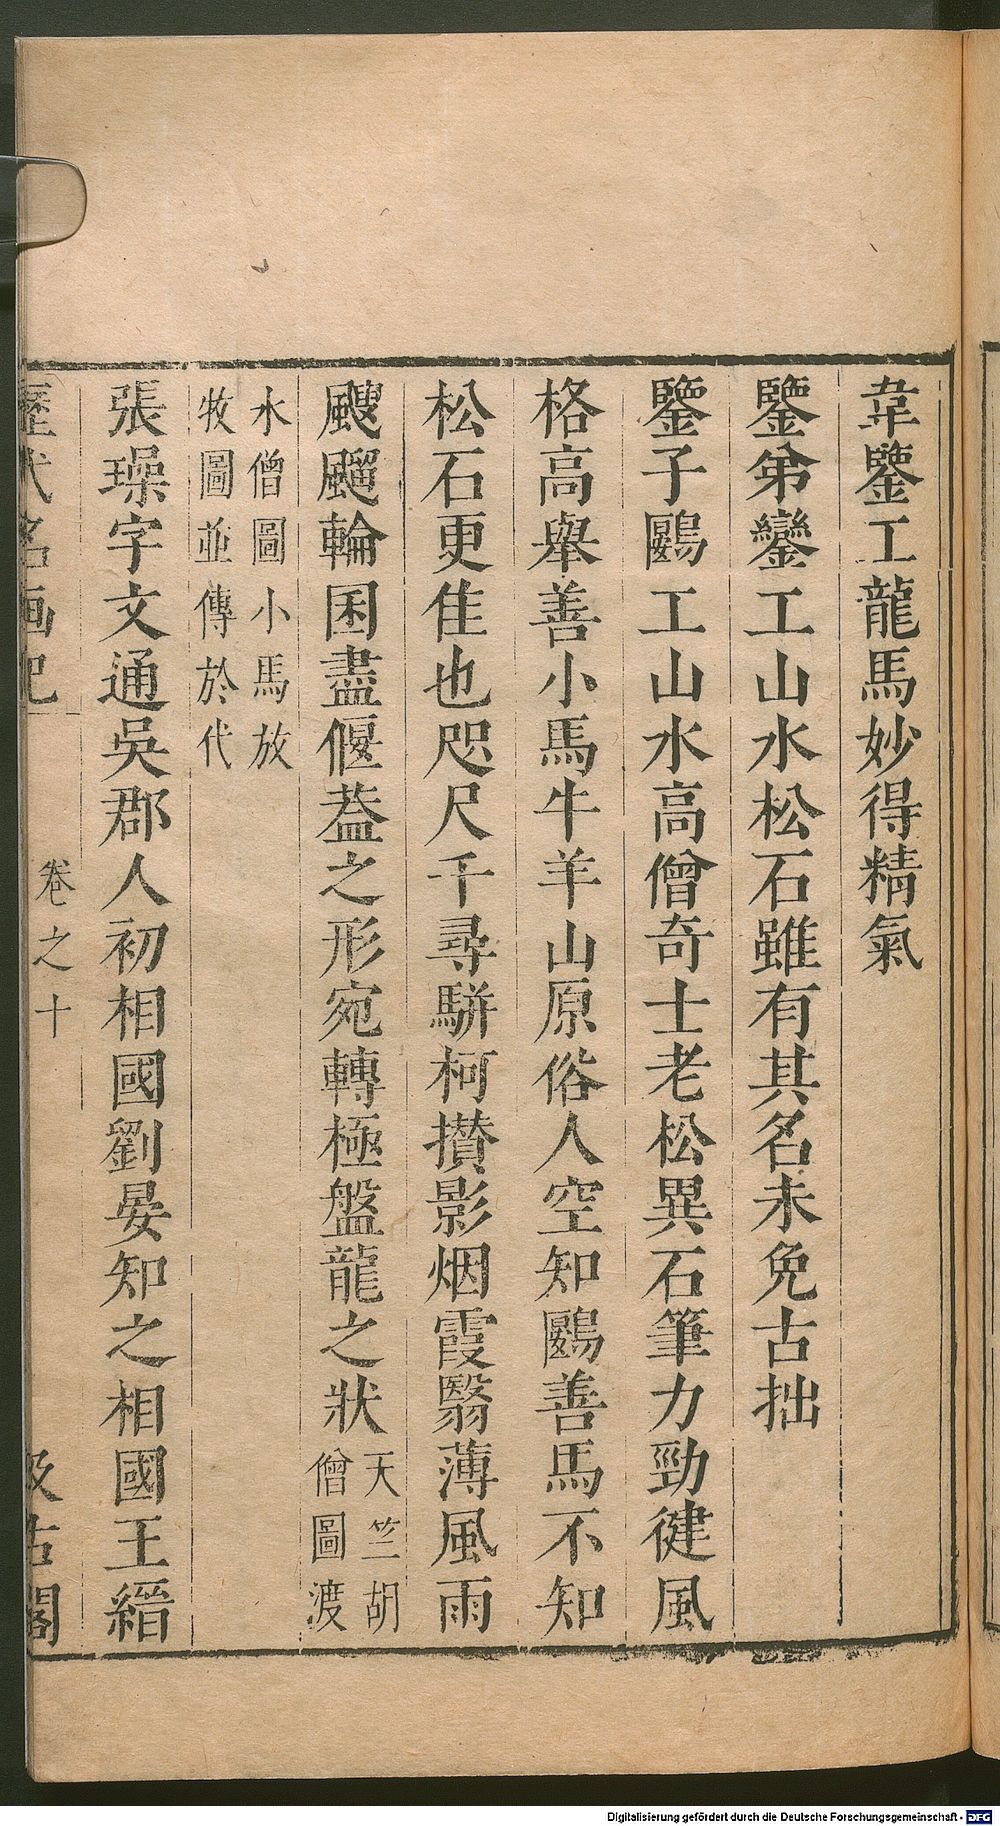 韋鑒工龍馬妙得精氣
鑒弟鑾工山水松石雖有其名未免古拙
鑒子鷗工山水高僧奇士老松異石筆力勁健風
格高舉善小馬牛羊山原俗人空知鷗善馬不知
松石更佳也咫尺千尋騈柯攢影烟霞翳薄風雨
颼飀輪囷盡偃葢之形宛轉極盤龍之狀天竺胡
僧圖渡
水僧圖小馬放
牧圖並傳於代
張璪字文通吳郡人初相國劉晏知之相國王縉
歷代名画記 卷之十 汲古閣
Digitalisierung gefördert durch die Deutsche Forschungsgemeinschaft - DFG